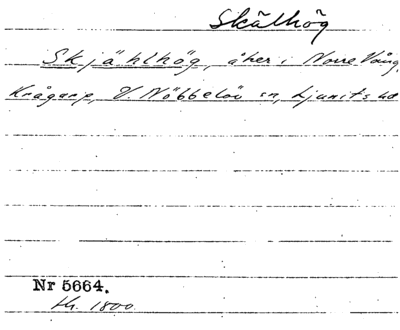 Skälhög
Skjählhög, åker i Norre Vång,
Krågarp, V. Nöbbelöv sn, Ljunits hd
Nr 5664.
1800